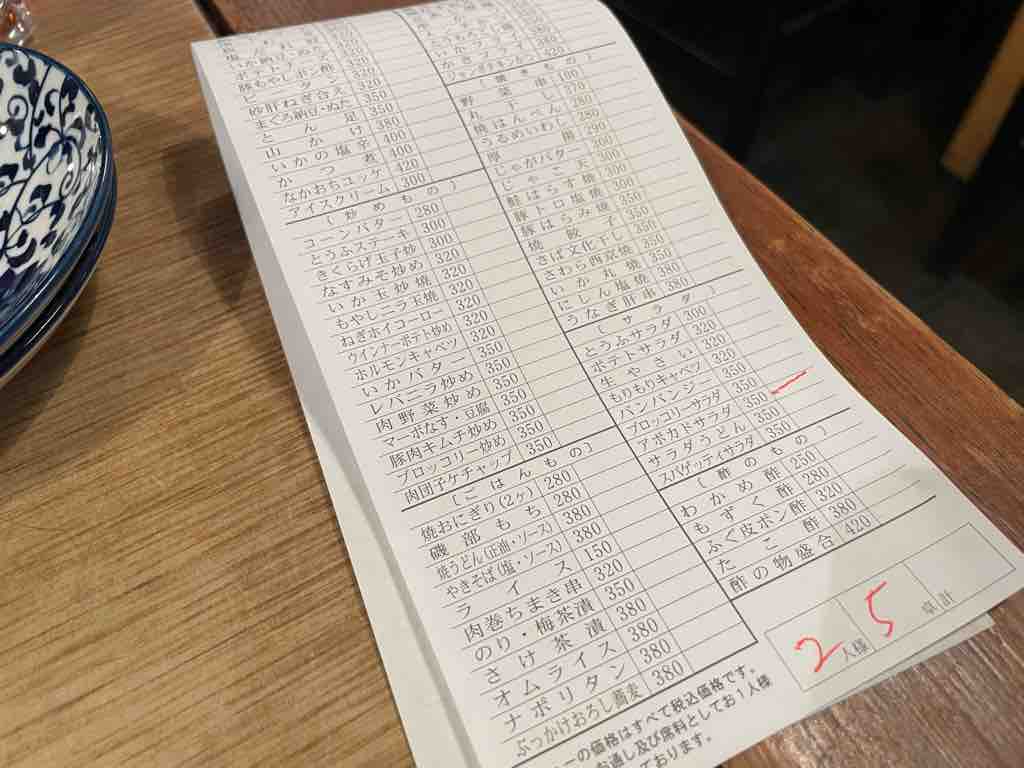 豚もやしポン酢 320
砂肝ねぎ合え 350
まぐろ納豆・ぬた 350
とん足
山かけ
いかの塩辛
かつ煮 400
なかおちユッケ 420
アイスクリーム 300
(炒めもの)
コーンバター 280
とうふステーキ 300
きくらげ玉子炒め 300
なすみそ炒め 320
いか玉炒焼 320
もやしニラ玉焼 320
ねぎホイコーロー 320
ウインナーポテト炒め 320
ホルモンキャベツ 320
いかバター 350
レバニラ炒め 350
肉野菜炒め 350
マーボなす・豆腐 350
豚肉キムチ炒め 350
ブロッコリー炒め 350
肉団子ケチャップ 350
(ごはんもの)
焼おにぎり(2ケ) 280
磯部もち 280
焼うどん(正油・ソース) 380
やきそば(塩・ソース) 380
ライス 150
肉巻ちまき串 320
のり・梅茶漬 350
さけ茶漬 380
オムライス 380
ナポリタン 380
ぶっかけおろし蕎麦 380
(焼きもの)
野菜串 100
丸干し 270
焼はんぺん 280
うるめいわし 280
厚揚 290
じゃがバター 300
じゃこ天 300
鮭はらす焼 300
豚トロ塩焼 300
豚はらみ焼 350
焼餃子 350
さば文化干し 350
さわら西京焼 350
いか丸焼 350
にしん塩焼 350
うなぎ肝串 380
(サラダ)
とうふサラダ 300
ポテトサラダ 320
生やさい 320
もりもりキャベツ 320
バンバンジー 350
ブロッコリーサラダ 350
アボカドサラダ 350
サラダうどん 350
スパゲッティサラダ 350
(酢のもの)
わかめ酢 250
もずく酢 280
ふく皮ポン酢 320
たこ酢 380
酢の物盛合 420
2人様 5卓 計
ーの価格はすべて税込価格です。
お通し及び席料としてお1人様
ております。